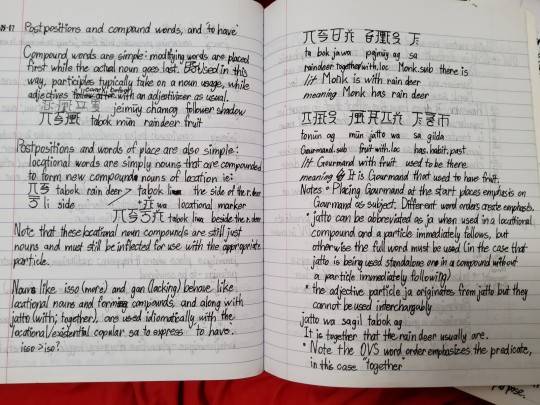 Postpositions and compound words, and "to have"
Compound words are simple: modifying words are placed
first while the actual noun goes last. Used in this
way, participles typically take on a noun usage, while
adjectives as usual.
jeimüy chamog follower shadow
tabok mün raindeer fruit
Postpositions and words of place are also simple:
locational words are simply nouns that are compounded
to form new compound nouns of location ie:
tabok rain deer tabok liwa the side of the r.deer
li side * wa locational marker
tabok liwa beside the r.deer
Note that these locational noun compounds are still just
nouns and must still be inflected for use with the appropriate
particle.
Nouns like isso (more) and gan (lacking) behave like
locational nouns and form compounds, and along with
jatto (with; together), are used idiomatically with the
locational/existential copular sa to express to have.
isso > iso?
ta bok jawa pajmüy ag sa
raindeer together/with.loc Monk.sub there is
lit Monk is with rain deer
meaning Monk has rain deer
tonün ag mün jatto wa sa gilda
Gourmand.sub fruit with.loc has.habit.past
lit Gourmand with fruit used to be there
meaning It is Gourmand that used to have fruit.
Notes • Placing Gourmand at the start places emphasis on
Gourmand as subject. Different word orders create emphasis.
• jatto can be abbreviated as ja when used in a locational
compound and a particle immediately follows, but
otherwise the full word must be used (in the case that
jatto is being used standalone or in a compound without
a particle immediately following)
• the adjective particle ja originates from jatto but they
cannot be used interchangably
jatto wa sagil tabok ag
It is together that the rain deer usually are.
* Note the OVS word order emphasizes the predicate,
in this case "together